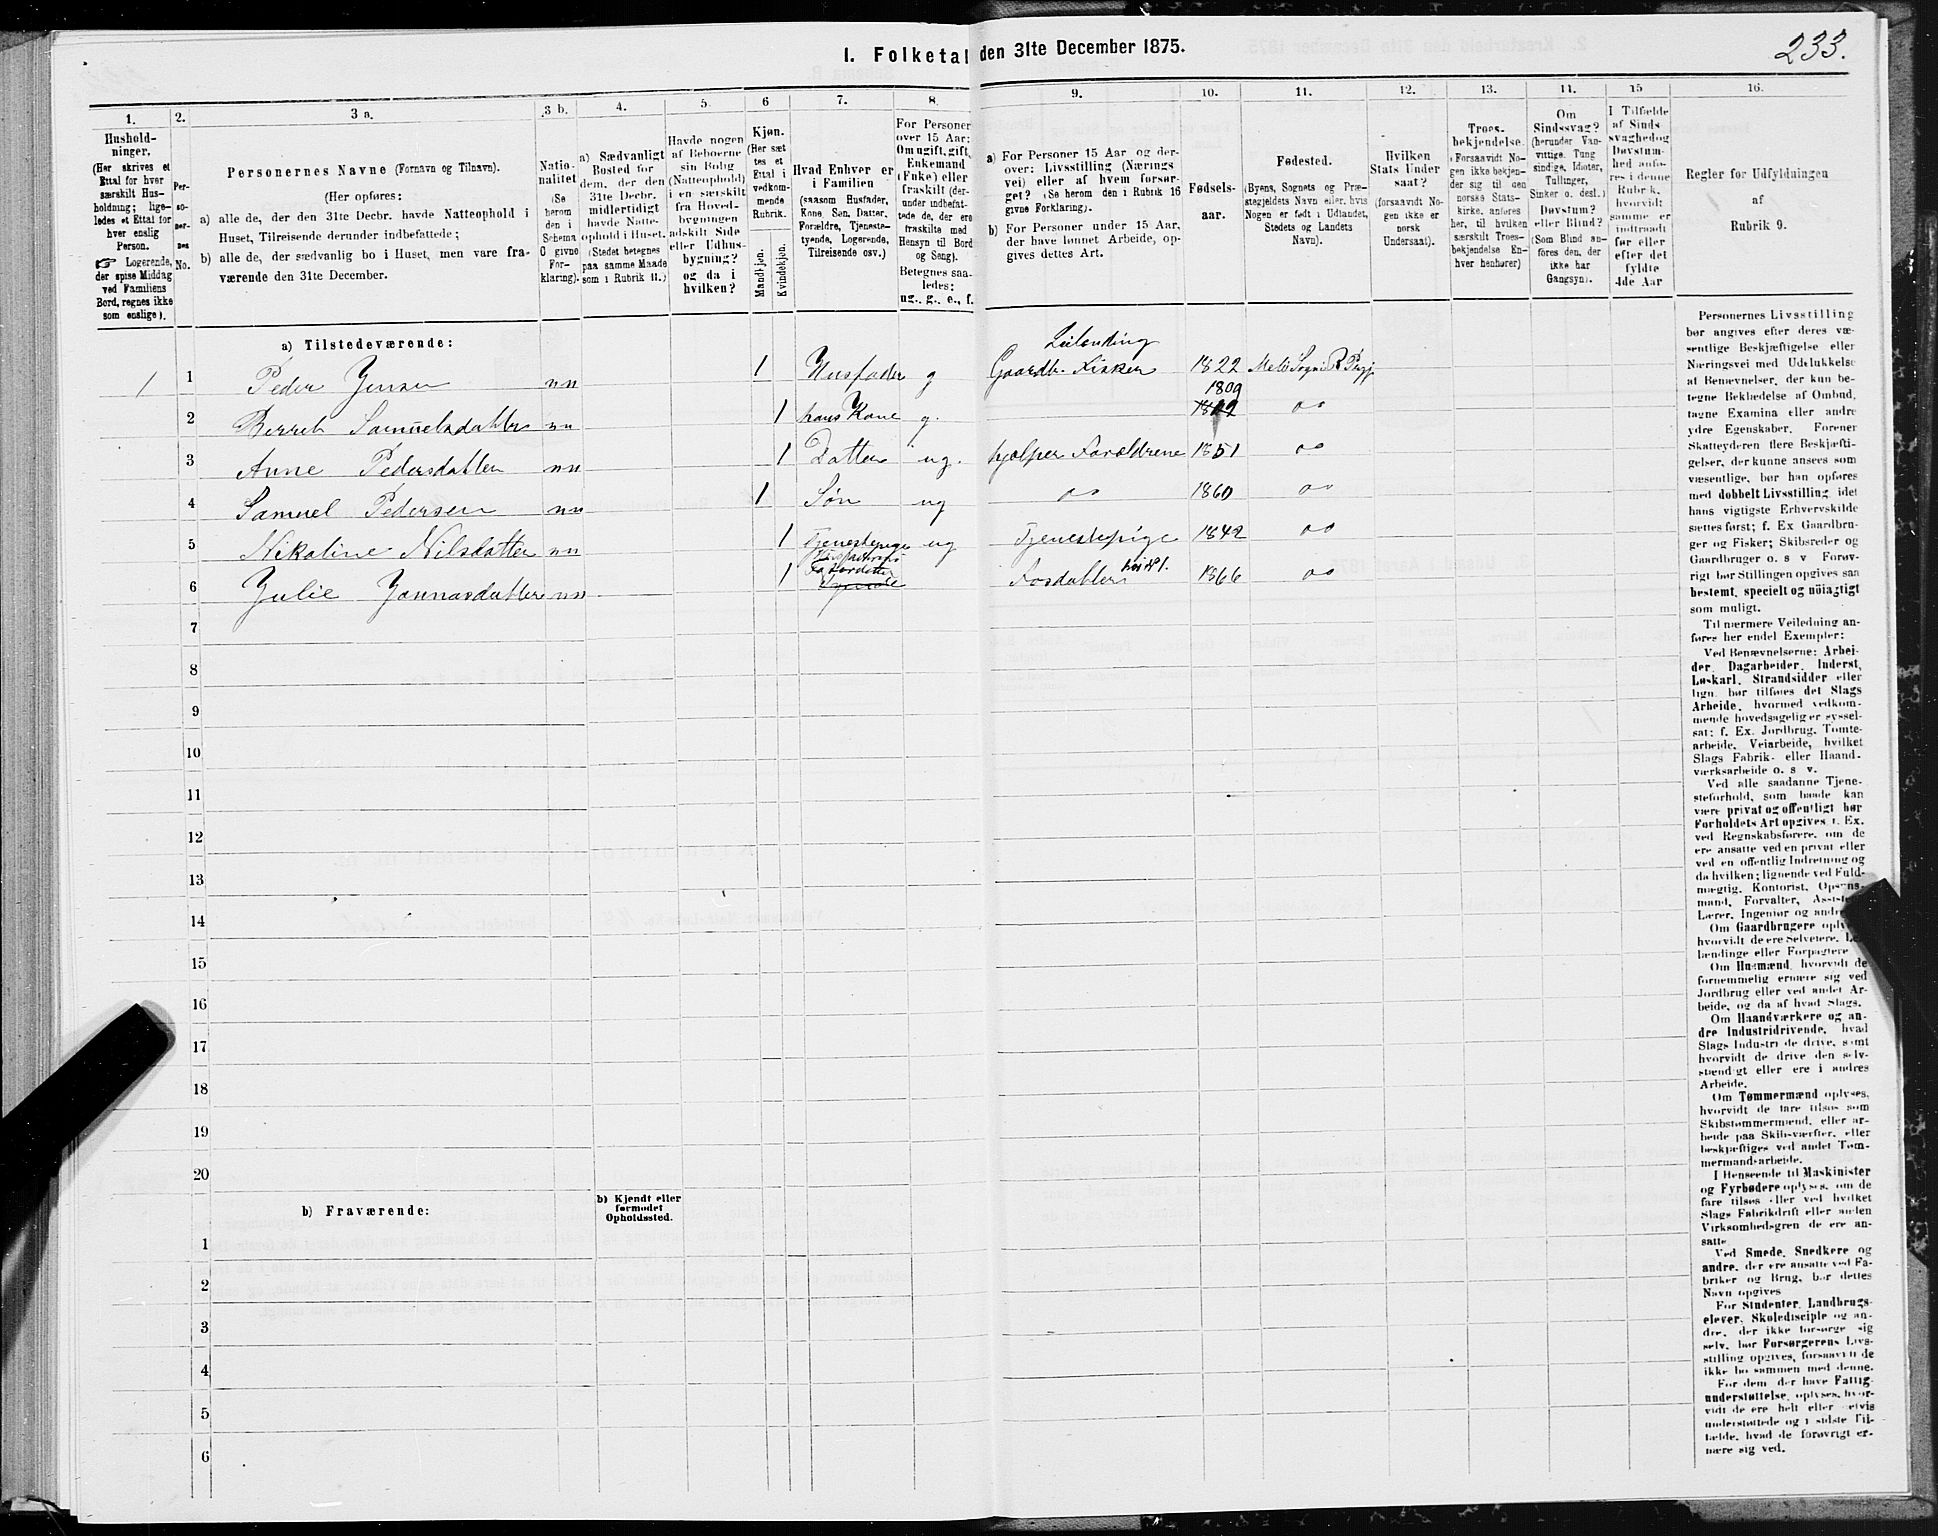 I. Folketal den 31te December 1875.
233.
1. 2. 3 a. 3 b. 4. 5. 6 7. 8. 9. 10. 11. 12. 13. 14. 15 16.
Hushold-
ninger.
(Her skrives et
Ettal for hver
særskilt Hus-
holdning; lige-
ledes et Ettal for
hver enslig
Person.
Logerende,
der spise Middag
ved Familiens
Bord, regnes ikke
som enslige).
Per-
so-
ner-
nes
No.
Personernes Navne (Fornavn og Tilnavn).
(Her opføres:
a) alle de, der den 31te Decbr. havde Natteophold i
Huset, Tilreisende derunder indbefattede;
b) alle de, der sædvanlig bo i Huset, men vare fra-
værende den 31te December.
Natio-
nalitet
(Se
herom
den i
Schema
C givne
For-
klaring).
a) Sædvanligt
Bosted for
dem, der den
31te Decbr.
midlertidigt
havde Natte-
ophold i Huset.
(Stedet betegnes
paa samme Maade
som i Rubrik 11.)
Havde nogen
af Beboerne
sin Bolig
(Natteophold)
i en særskilt
fra Hoved-
bygningen
adskilt Side
eller Udhus-
bygning?
og da i
hvilken?
Kjøn.
(Her sæt
tes et
Ettal i
vedkom-
mende
Rubrik.
Mandkjøn.
Kvindekjøn.
Hvad Enhver er
i Familien
(saasom Husfader,
Kone, Søn, Datter,
Forældre, Tjeneste-
tyende, Logerende,
Tilreisende osv.)
For Personer
over 15 Aar:
Om ugift, gift,
Enkemand
(Enke) eller
fraskilt (der-
under indbefat-
tede de, der ere
fraskilte med
Hensyn til Bord
og Seng).
Betegnes saa-
ledes:
ug., g., e., f.
a) For Personer 15 Aar og der-
over: Livsstilling (Nærings
vei) eller af hvem forsør-
get? (Se herom den i Rubrik 16
givne Forklaring).
b) For Personer under 15 Aar,
der have lønnet Arbeide, op-
gives dettes Art.
Fødsels-
aar.
Fødested.
(Byens, Sognets og Præ-
stegjeldets Navn eller, hvis
Nogen er født i Udlandet,
Stedets og Landets
Navn).
Hvilken
Stats Under
saat?
(forsaavidt No-
gen ikke er
norsk
Undersaat).
Troes-
bekjendelse.
(Forsaavidt No-
gen ikke bekjen-
der sig til den
norske Stats-
kirke, anføres
her, til hvilken
særskilt Troes-
bekjendelse En-
hver henhører)
Om
Sindssvag?
(herunder Van-
vittige, Tung
sindige, Idioter,
Tullinger,
Sinker o. desl.)
Døvstum?
eller Blind?
(Som Blind an-
føres den, der
ikke har
Gangsyn).
I Tilfælde
af Sinds-
svaghed og
Døvstum-
hed anfø-
res i denne
Rubrik,
hvorvidt
samme er
indtraadt
før eller
efter det
fyldte
4de Aar
Regler for Udfyldningen
af
Rubrik 9.
a) Tilstedeværende:
Leilending
1 1 Peder Jensen nn 1 Husfader g Gaardb. Fisker 1822 Melø Sogn R Pgj
1809
2 Berret Samuelsdatter nn 1 hans Kone g. do
3 Anne Pedersdatter nn 1 Datter ug. hjælper Forældrene 1851 do
4 Samuel Pedersen nn 1 Søn ug do 1860 do
5 Nikoline Nilsdatter nn 1 Tjenestepige ug Tjenestepige 1842 do
6 Julie Jonnasdatter nn 1 Fosdatter 1866 do
7
8
9
10
11
12
13
14
15
16
17
18
19
20
b) Fraværende:
b) Kjendt eller
formodet
Opholdssted.
1
2
3
4
5
6
Personernes Livsstilling
bør angives efter deres væ-
sentlige Beskjæftigelse eller
Næringsvei med Udelukkelse
af Benævnelser, der kun be-
tegne Beklædelse af Ombud,
tagne Examina eller andre
ydre Egenskaber. Forener
Skatteyderen flere Beskjæfti-
gelser, der kunne ansees som
væsentlige, bør han opføres
med dobbelt Livsstilling idet
hans vigtigste Erhvervskilde
sættes først; f. Ex Gaardbru-
ger og Fisker; Skibsreder og
Gaardbruger o. s v Forøv-
rigt bør Stillingen opgives saa
bestemt, specielt og nöiagtigt
som muligt.
Til nærmere Veiledning an-
føres her endel Exempler:
Ved Benævnelserne: Arbei-
der, Dagarbeider, Inderst,
Løskarl, Strandsidder eller
lign. bør tilføres det Slags
Arbeide, hvormed vedkom-
mende hovedsagelig er syssel-
sat: f. Ex. Jordbrug, Tomte-
arbeide, Veiarbeide, hvilket
Slags Fabrik- eller Haand-
værksarbeide o. s v.
Ved alle saadanne Tjene-
steforhold, som baade kan
være privat og offentligt bør
Forholdets Art opgives, f. Ex.
ved Regnskabsførere, om de
ere ansatte ved en privat eller
ved en offentlig Indretning og
da hvilken; lignende ved Fuld-
mægtig, Kontorist, Opsyns-
mand, Forvalter,
Lærer, Ingeniør og
Om Gaardbrugere
hvorvidt de ere Selveiere,
lændinge eller Forpagtere
Om Husmænd, hvorvidt de
fornemmelig ernære sig ved
Jordbrug eller ved andet Ar-
beide, og da af hvad Slags.
Om Haandværkere og an-
dre Industridrivende, hvad
Slags Industri de drive, samt
hvorvidt de drive den selv-
stændigt eller ere i andres
Arbeide.
Om Tømmermænd oplyses,
hvorvidt de fare tilsøs som
Skibstømmermænd, eller ar-
beide paa Skibsværfter, eller
beskjæftiges ved andet Tøm-
mermandsarbeide.
I Henseende til Maskinister
og Fyrbødere oplyses, om de
fare tilsøs eller ved hvilket
Slags Fabrikdrift eller anden
Virksomhedsgren de ere an-
satte
Ved Smede, Snedkere og
andre, der ere ansatte ved Fa-
briker og Brug, bør dettes
Navn opgives
For Studenter, Landbrugs-
elever, Skoledisciple og an-
dre, der ikke forsørge sig
selv, bør Forsørgerens Livs-
stilling opgives, forsaavidt de
ikke bo sammen med denne.
For dem, der have Fattig-
understøttelse, oplyses, hvor-
vidt de ere helt eller delvis
understøttede og i sidste Til-
fælde, hvad de forøvrigt er-
nære sig ved.